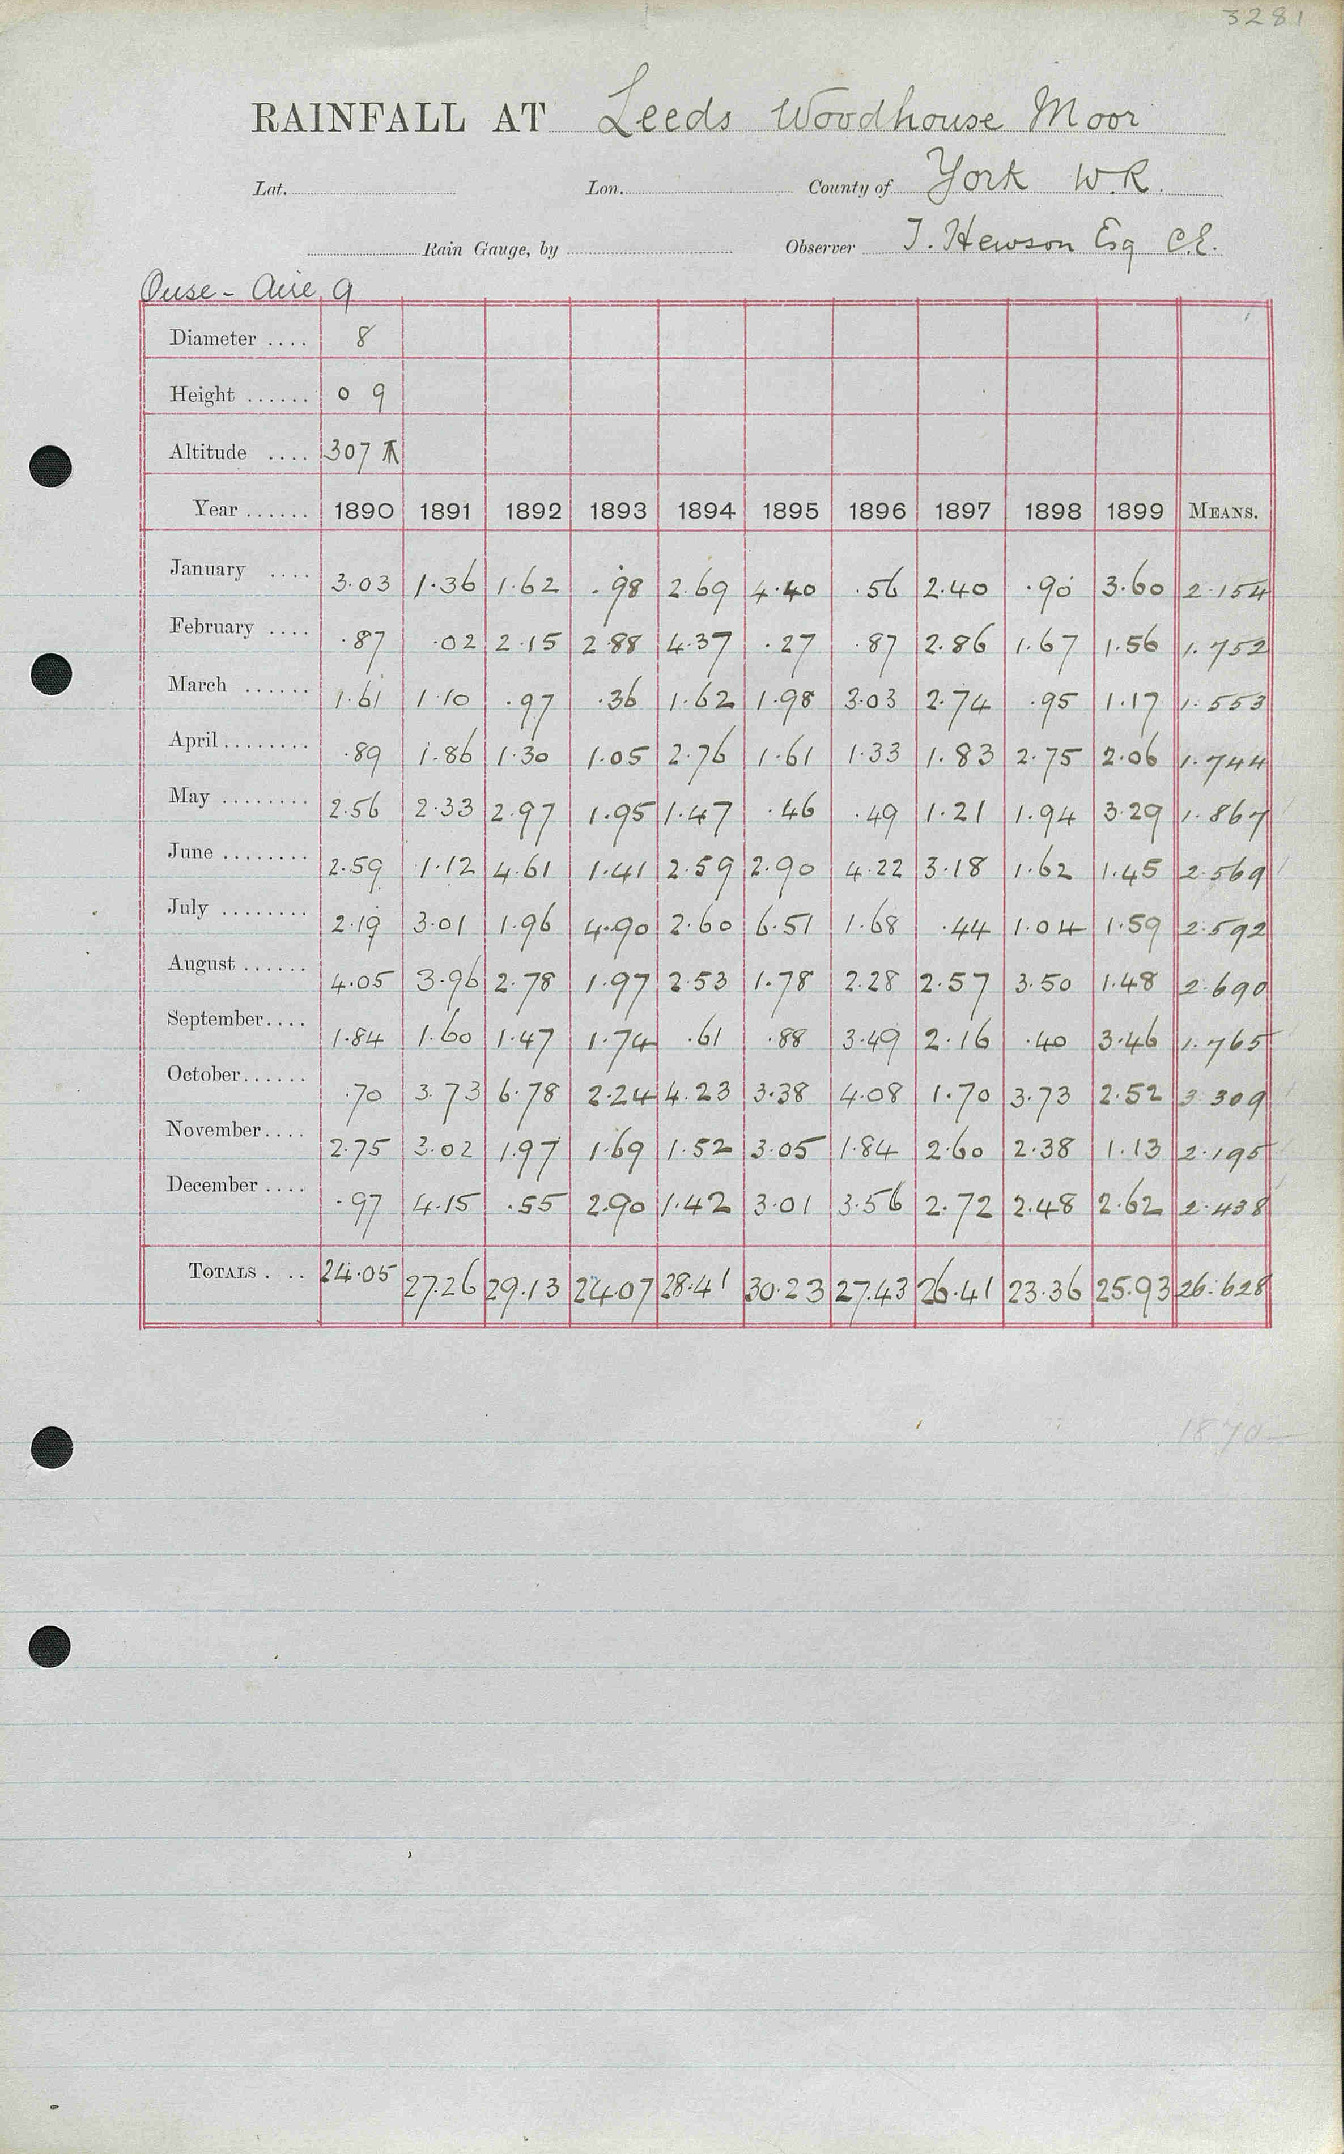 3281
RAINFALL AT Leeds Woodhouse Moor
Lat. Lon. County of York W.R.
Rain Gauge, by Observer T. Hewson Esq C.E.
Ouse - Aire 9
Diameter .... 8
Height ...... 0 9
Altitude .... 307
Year ...... 1890 1891 1892 1893 1894 1895 1896 1897 1898 1899 MEANS.
January .... 3.03 1.36 1.62 .98 2.69 4.40 .56 2.40 .90 3.60 2.154
February .... .87 .02 2.15 2.88 4.37 .27 .87 2.86 1.67 1.56 1.752
March ...... 1.61 1.10 .97 .36 1.62 1.98 3.03 2.74 .95 1.17 1.553
April ........ .89 1.86 1.30 1.05 2.76 1.61 1.33 1.83 2.75 2.06 1.744
May ........ 2.56 2.33 2.97 1.95 1.47 .46 .49 1.21 1.94 3.29 1.867
June ........ 2.59 1.12 4.61 1.41 2.59 2.90 4.22 3.18 1.62 1.45 2.569
July ........ 2.19 3.01 1.96 4.90 2.60 6.51 1.68 .44 1.04 1.59 2.592
August ...... 4.05 3.96 2.78 1.97 2.53 1.78 2.28 2.57 3.50 1.48 2.690
September .... 1.84 1.60 1.47 1.74 .61 .88 3.49 2.16 .40 3.46 1.765
October ...... .70 3.73 6.78 2.24 4.23 3.38 4.08 1.70 3.73 2.52 3.309
November .... 2.75 3.02 1.97 1.69 1.52 3.05 1.84 2.60 2.38 1.13 2.195
December .... .97 4.15 .55 2.90 1.42 3.01 3.56 2.72 2.48 2.62 2.438
TOTALS . .. 24.05 27.26 29.13 24.07 28.41 30.23 27.43 26.41 23.36 25.93 26.628
1870-